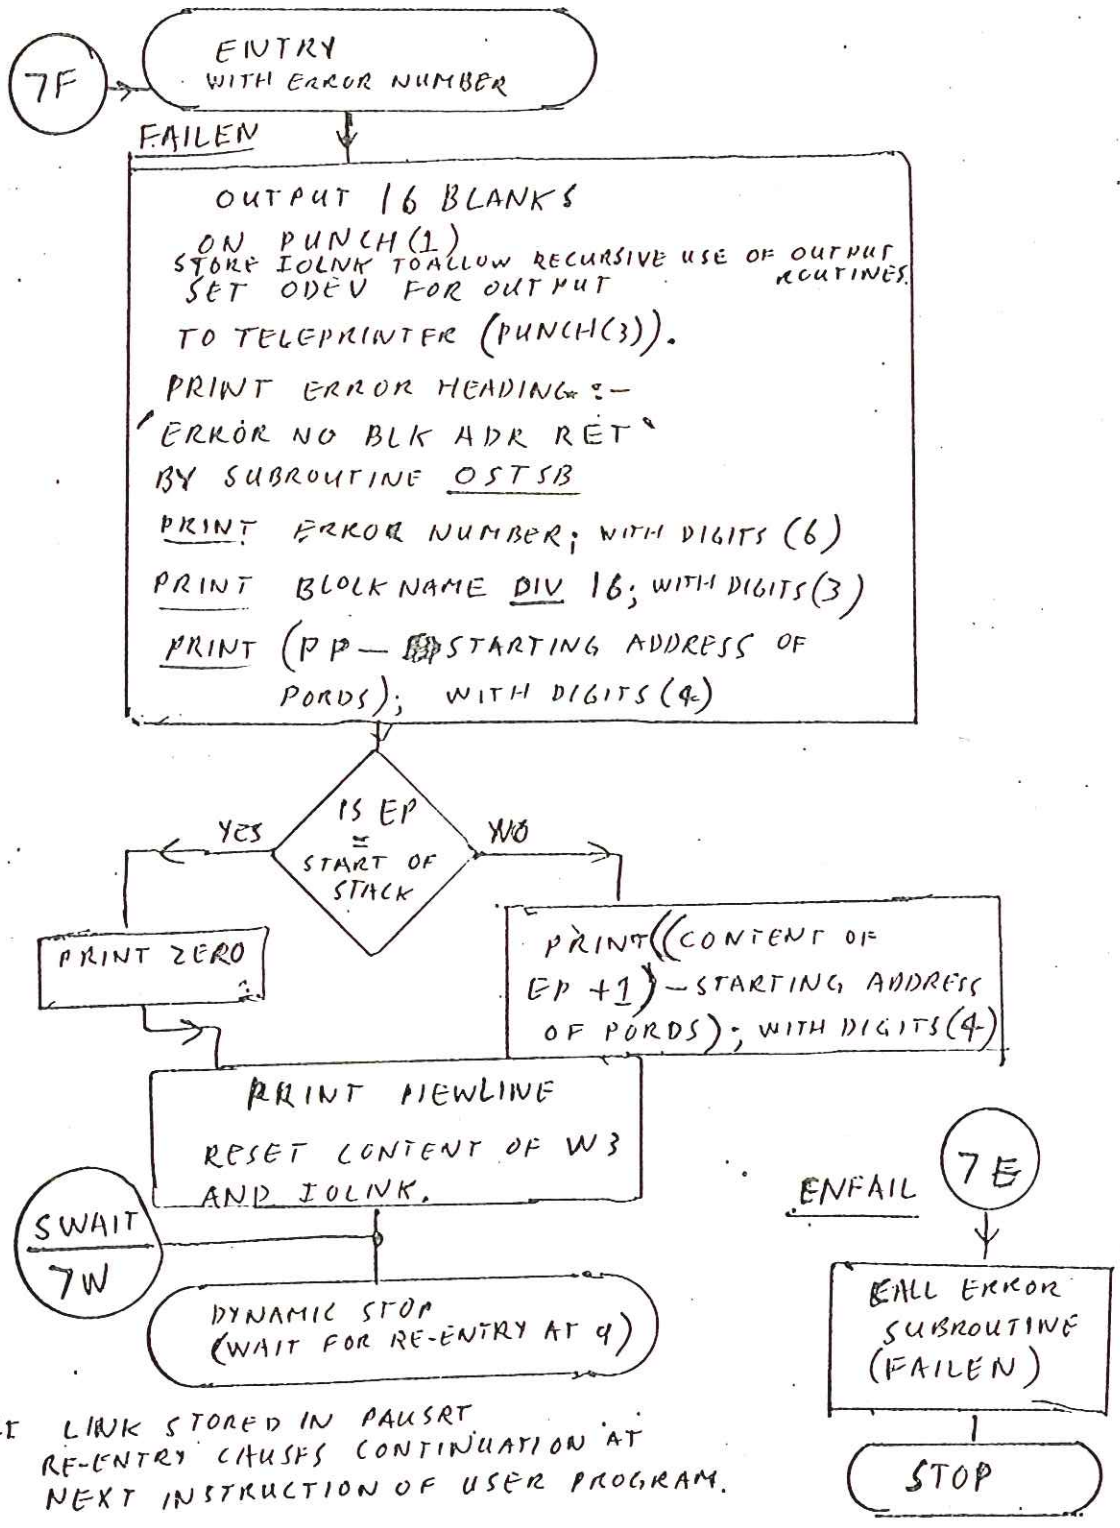 7F
ENTRY
WITH ERROR NUMBER
FAILEN
OUTPUT 16 BLANKS
ON PUNCH(1)
STORE IOLNK TO ALLOW RECURSIVE USE OF OUTPUT
ROUTINES.
SET ODEV FOR OUTPUT
TO TELEPRINTER (PUNCH(3)).
PRINT ERROR HEADING :-
'ERROR NO BLK ADR RET'
BY SUBROUTINE OSTSB
PRINT ERROR NUMBER; WITH DIGITS (6)
PRINT BLOCKNAME DIV 16; WITH DIGITS(3)
PRINT (PP - STARTING ADDRESS OF
PORDS); WITH DIGITS(4)
IS EP
=
START OF
STACK
YES
NO
PRINT ZERO
PRINT((CONTENT OF
EP +1) - STARTING ADDRESS
OF PORDS); WITH DIGITS(4)
PRINT NEWLINE
RESET CONTENT OF W3
AND IOLNK.
SWAIT
7W
DYNAMIC STOP
(WAIT FOR RE-ENTRY AT 9)
LINK STORED IN PAUSRT
RE-ENTRY CAUSES CONTINUATION AT
NEXT INSTRUCTION OF USER PROGRAM.
7E
ENFAIL
CALL ERROR
SUBROUTINE
(FAILEN)
STOP